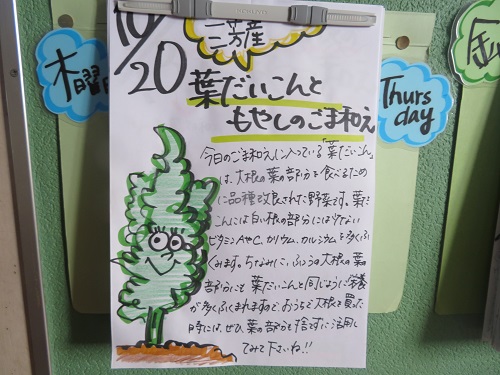 10/20
三芳産
葉だいこんと
もやしのごま和え
木曜日
Thurs
day
金
今日のごま和えに入っている「葉だいこん」
は、大根の葉の部分を食べるため
に品種改良された野菜です。葉だ
いこんには白い根の部分には少ない
ビタミンAやC、カリウム、カルシウムを多くふ
くみます。ちなみに、ふつうの大根の葉の
部分にも葉だいこんと同じように栄養
が多くふくまれますので、おうちで大根を買った
時には、ぜひ、葉の部分も捨てずに活用し
てみて下さいね!!